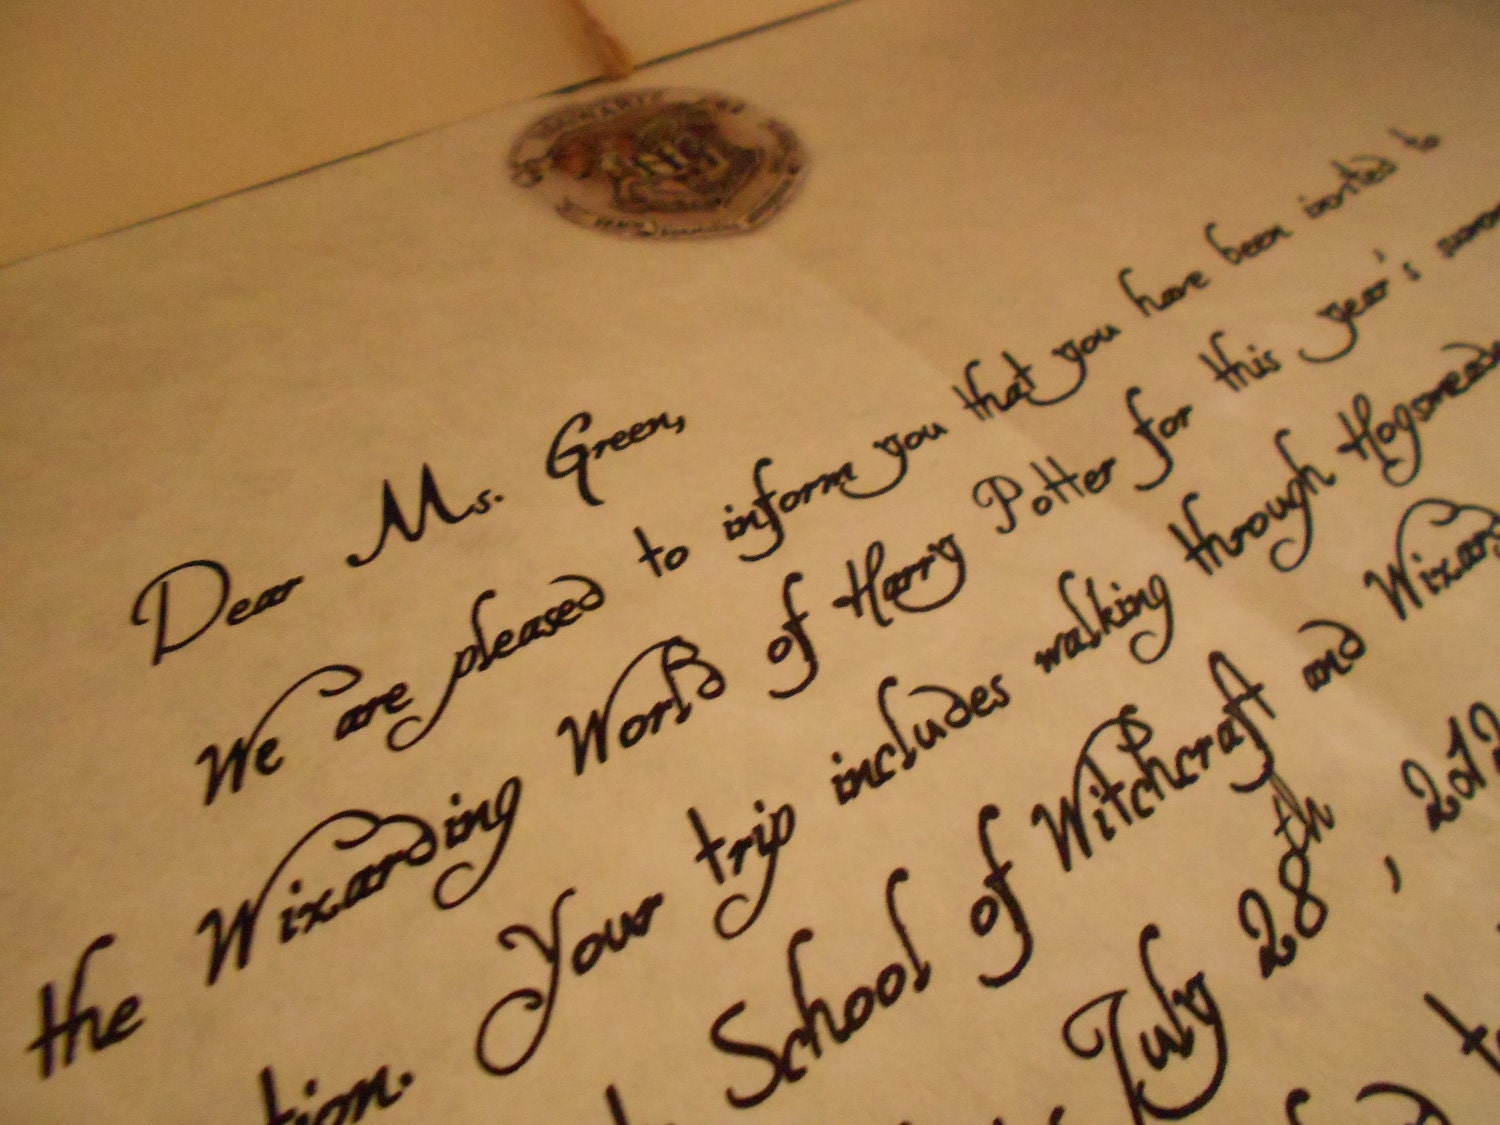 HOGWARTS
Dear Ms. Green,
We are pleased to inform you that you have been invited to
the Wizarding World of Harry Potter for this year's
tion. Your trip includes walking through Hogsmeade
School of Witchcraft and
July 28th,